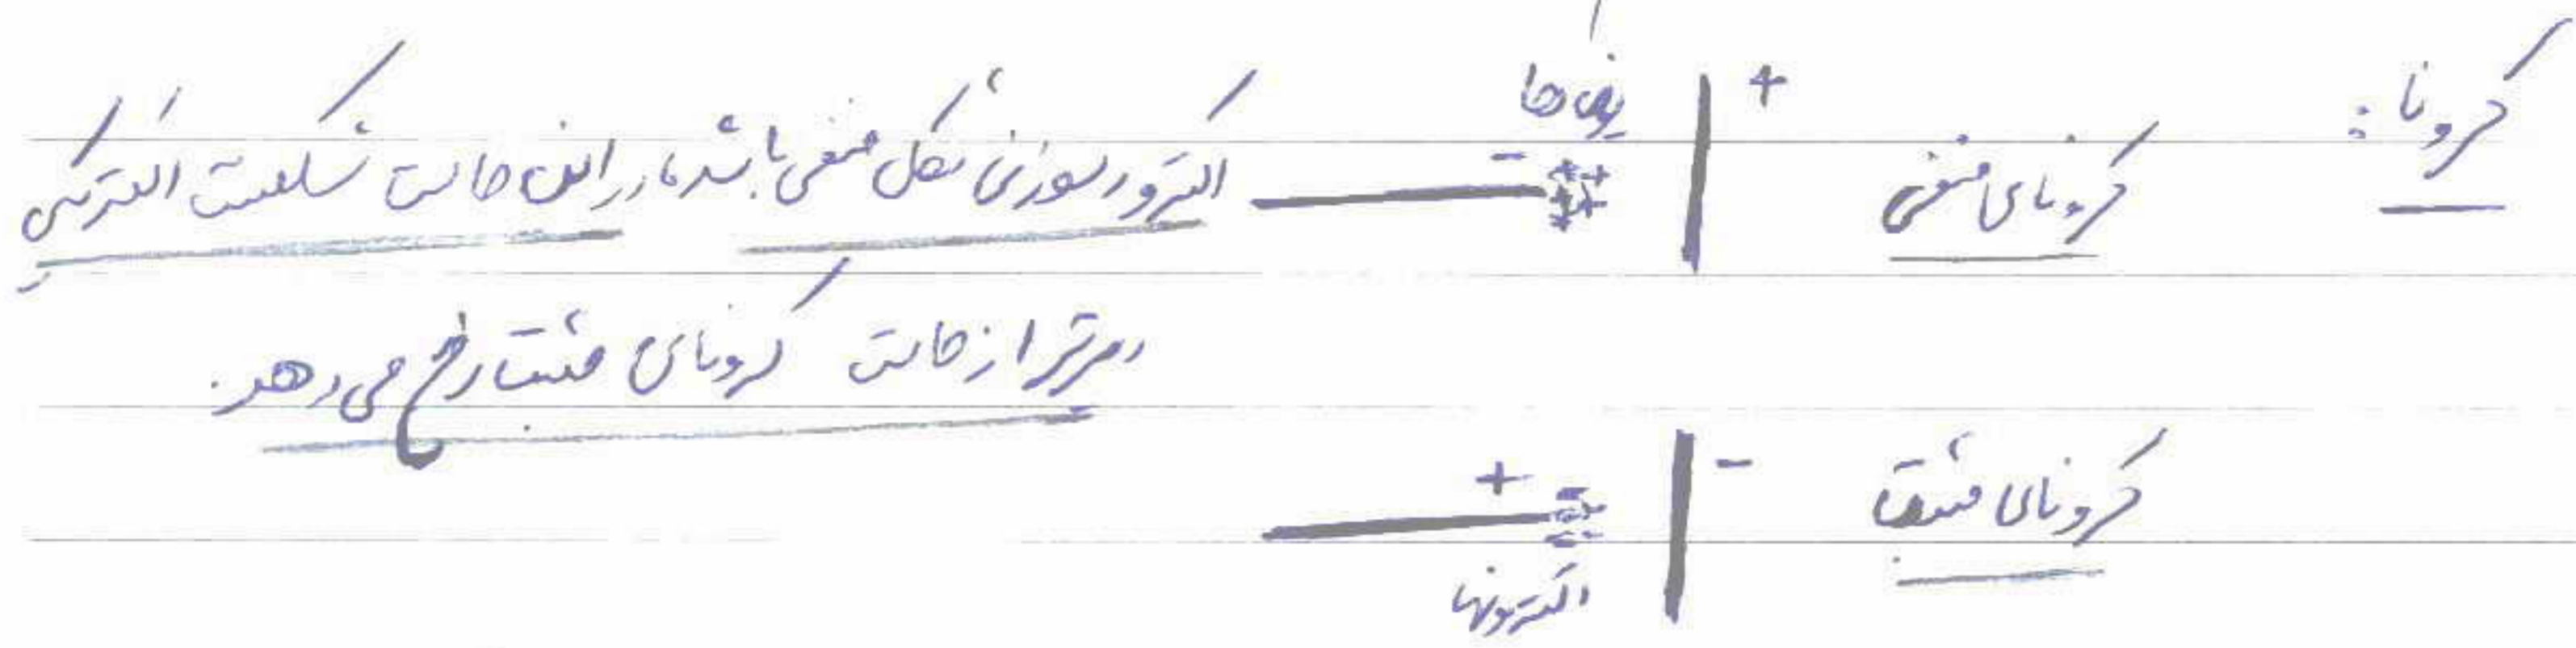 کرونا :
کرونای منفی + یونها -
الکترود سوزنی شکل منفی باشد، در این حالت شکست الکتریکی
دیرتر از حالت کرونای مثبت رخ می دهد.
کرونای مثبت - +
الکترونها